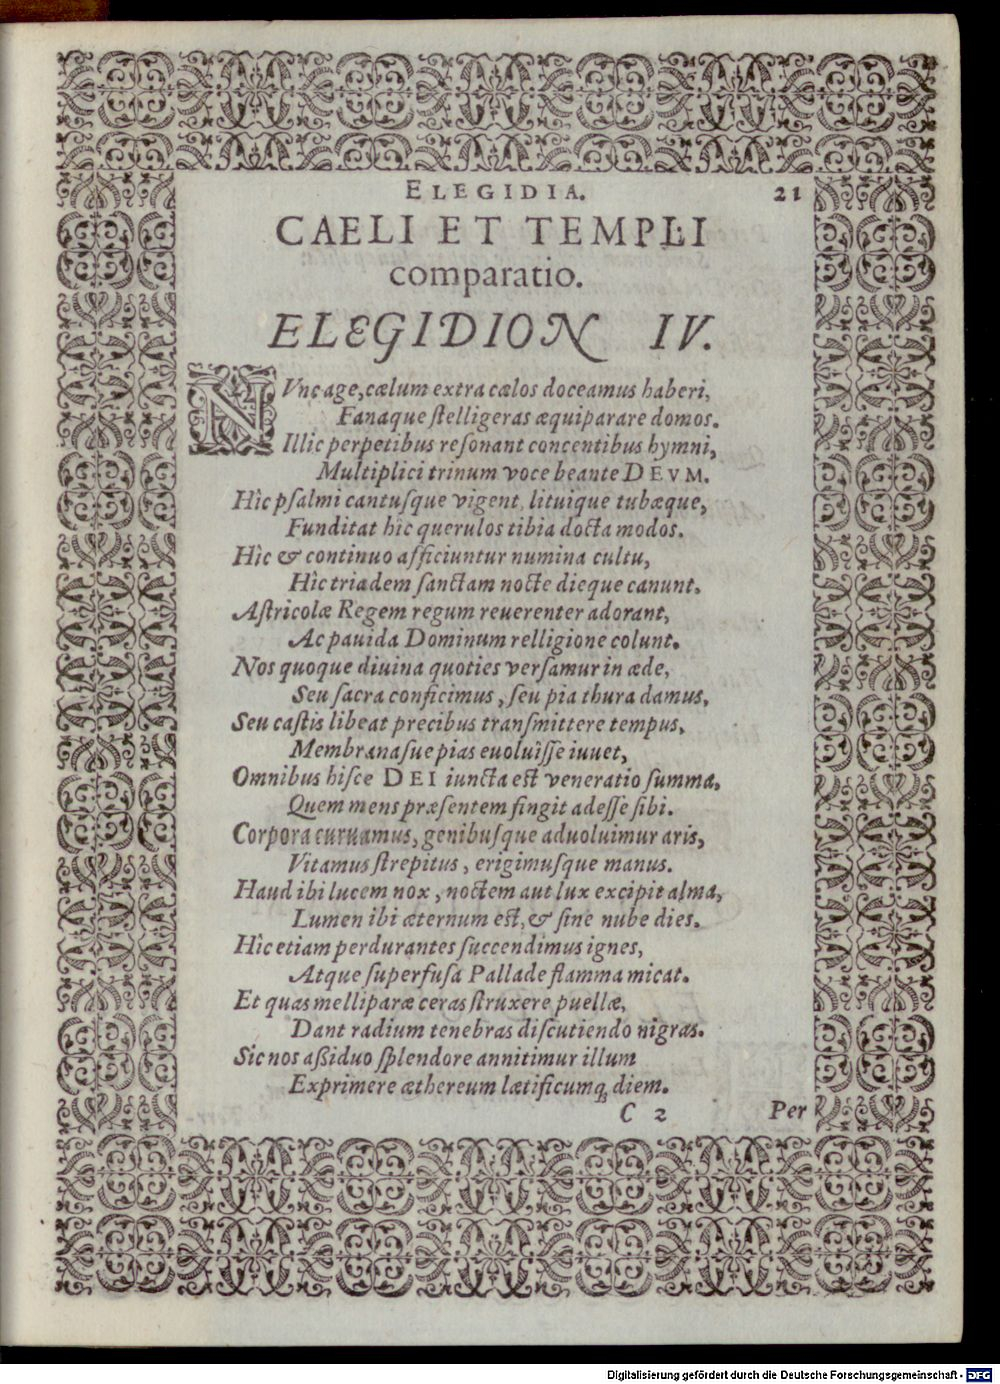 ELEGIDIA. 21
CAELI ET TEMPLI
comparatio.
ELEGIDION IV.
NVnc age, cælum extra cælos doceamus haberi,
Fanaque ſtelligeras æquiparare domos.
Illic perpetibus reſonant concentibus hymni,
Multiplici trinum voce beante DEVM.
Hìc pſalmi cantuſque vigent, lituique tubæque,
Funditat hìc querulos tibia docta modos.
Hìc & continuo afficiuntur numina cultu,
Hìc triadem ſanctam nocte dieque canunt.
Aſtricolæ Regem regum reuerenter adorant,
Ac pauida Dominum relligione colunt.
Nos quoque diuina quoties verſamur in æde,
Seu ſacra conficimus, ſeu pia thura damus,
Seu caſtis libeat precibus tranſmittere tempus,
Membranaſue pias euoluiſſe iuuet,
Omnibus hiſce DEI iuncta est veneratio ſumma,
Quem mens præſentem fingit adeſſe ſibi.
Corpora curuamus, genibuſque aduoluimur aris,
Vitamus ſtrepitus, erigimuſque manus.
Haud ibi lucem nox, noctem aut lux excipit alma,
Lumen ibi æternum est, & ſine nube dies.
Hìc etiam perdurantes ſuccendimus ignes,
Atque ſuperfuſa Pallade flamma micat.
Et quas melliparæ ceras ſtruxere puellæ,
Dant radium tenebras diſcutiendo nigras.
Sic nos aßiduo ſplendore annitimur illum
Exprimere æthereum lætificumq; diem.
C 2 Per
Digitalisierung gefördert durch die Deutsche Forschungsgemeinschaft - DFG